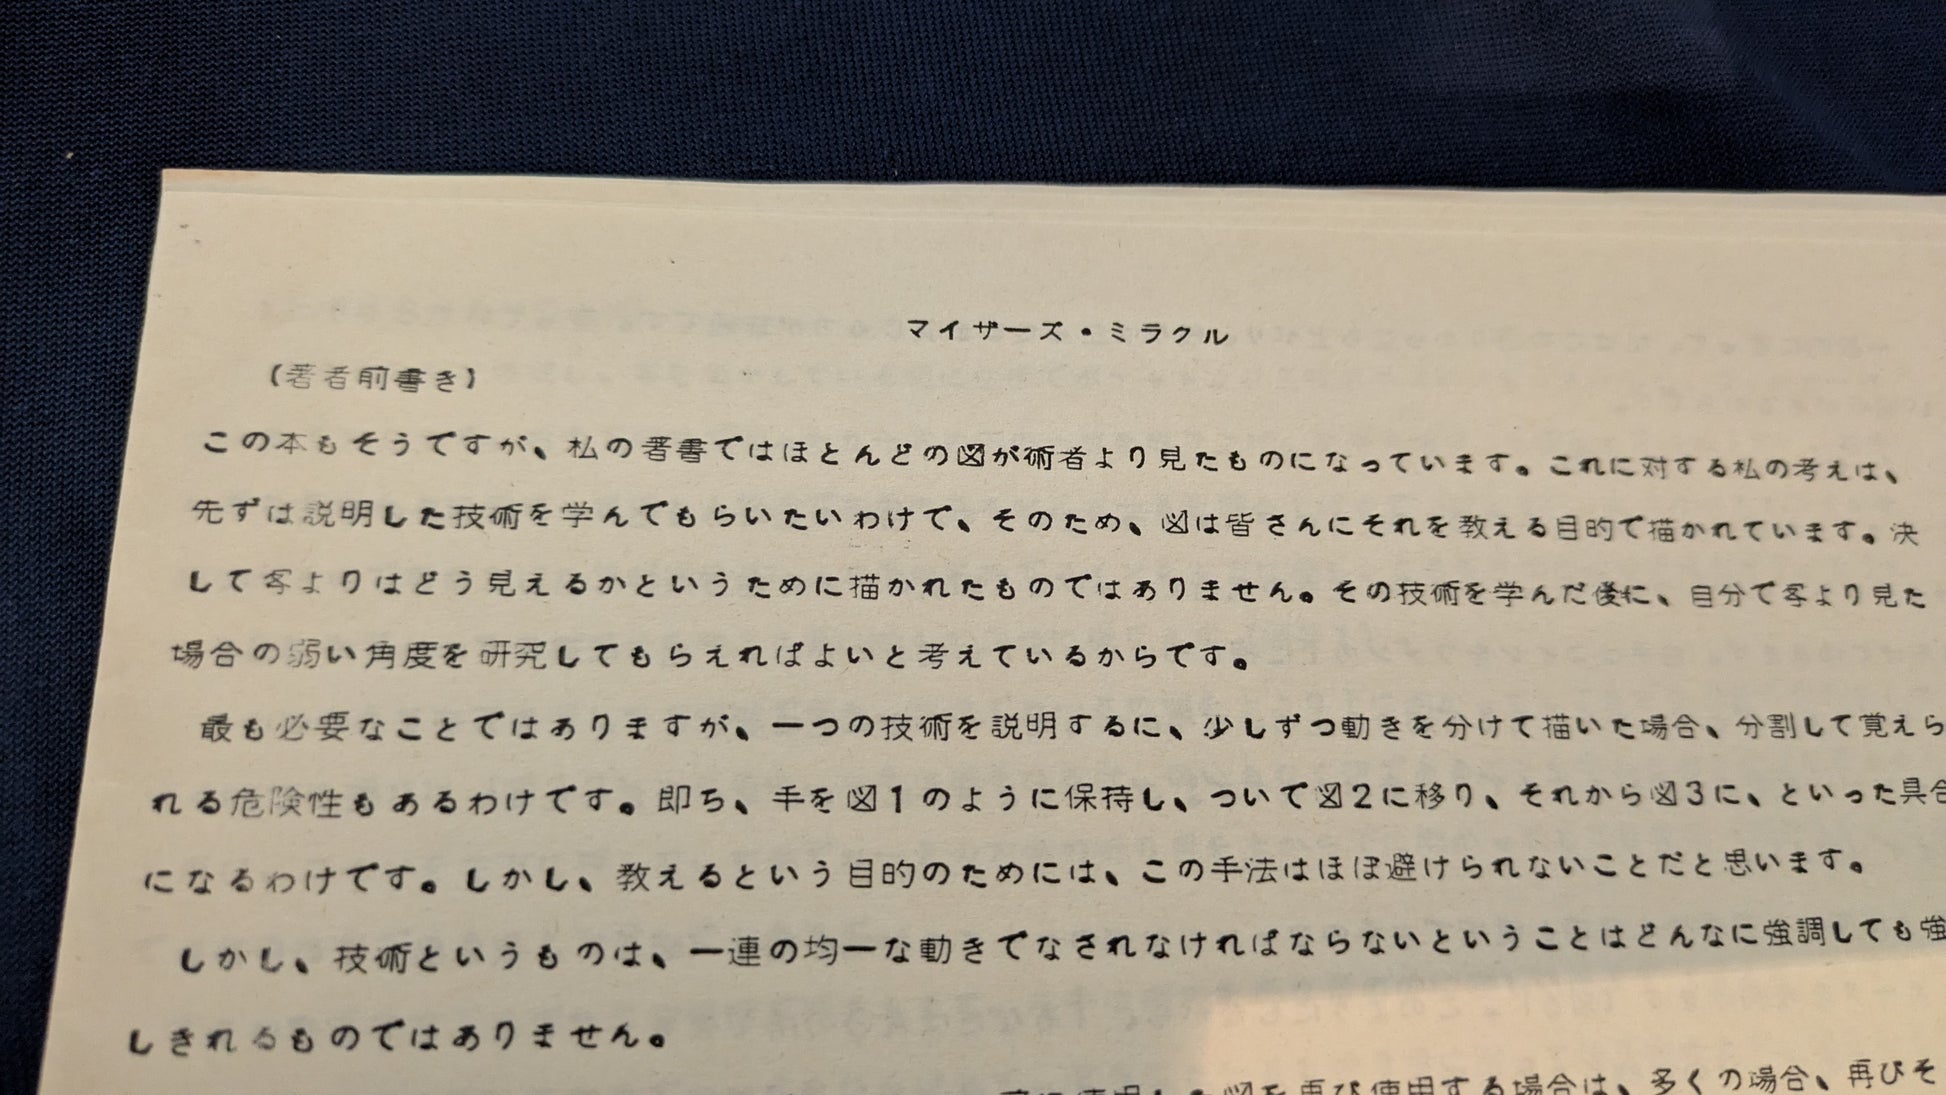 マイザーズ・ミラクル
(著者前書き)
この本もそうですが、私の著書ではほとんどの図が術者より見たものになっています。これに対する私の考えは、
先ずは説明した技術を学んでもらいたいわけで、そのため、図は皆さんにそれを教える目的で描かれています。決
して客よりはどう見えるかというために描かれたものではありません。その技術を学んだ後に、自分で客より見た
場合の弱い角度を研究してもらえればよいと考えているからです。
最も必要なことではありますが、一つの技術を説明するに、少しずつ動きを分けて描いた場合、分割して覚えら
れる危険性もあるわけです。即ち、手を図1のように保持し、ついで図2に移り、それから図3に、といった具合
になるわけです。しかし、教えるという目的のためには、この手法はほぼ避けられないことだと思います。
しかし、技術というものは、一連の均一な動きでなされなければならないということはどんなに強調しても強
しきれるものではありません。
使用した図を再び使用する場合は、多くの場合、再びそ